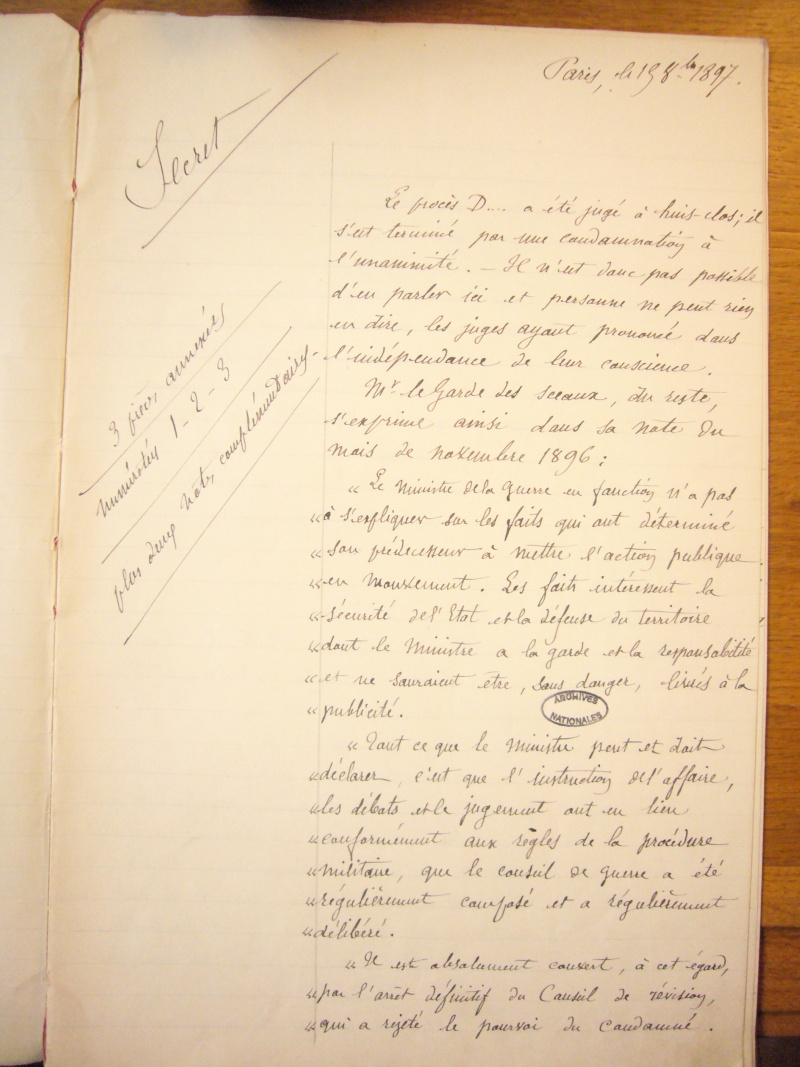 Paris, le 19 8bre 1897.
Secret
Le procès D.... a été jugé à huis-clos; il
s'est terminé par une condamnation à
l'unanimité. — Il n'est donc pas possible
d'en parler ici et personne ne peut rien
en dire, les juges ayant prononcé dans
l'indépendance de leur conscience.
3 pièces annexées
numérotées 1 - 2 - 3
plus deux notes complémentaires.
Mr le Garde des sceaux, du reste,
s'exprime ainsi dans sa note du
mois de novembre 1896:
« Le Ministre de la Guerre en fonction n'a pas
« à s'expliquer sur les faits qui ont déterminé
« son prédécesseur à mettre l'action publique
« en mouvement. Les faits intéressent la
« sécurité de l'Etat et la défense du territoire
« dont le Ministre a la garde et la responsabilité
« et ne sauraient être, sans danger, livrés à la
« publicité.
ARCHIVES
NATIONALES
« Tout ce que le Ministre peut et doit
« déclarer, c'est que l'instruction de l'affaire,
« les débats et le jugement ont eu lieu
« conformément aux règles de la procédure
« militaire, que le conseil de guerre a été
« régulièrement composé et a régulièrement
« délibéré.
« Il est absolument couvert, à cet égard,
« par l'arrêt définitif du Conseil de révision,
« qui a rejeté le pourvoi du condamné.